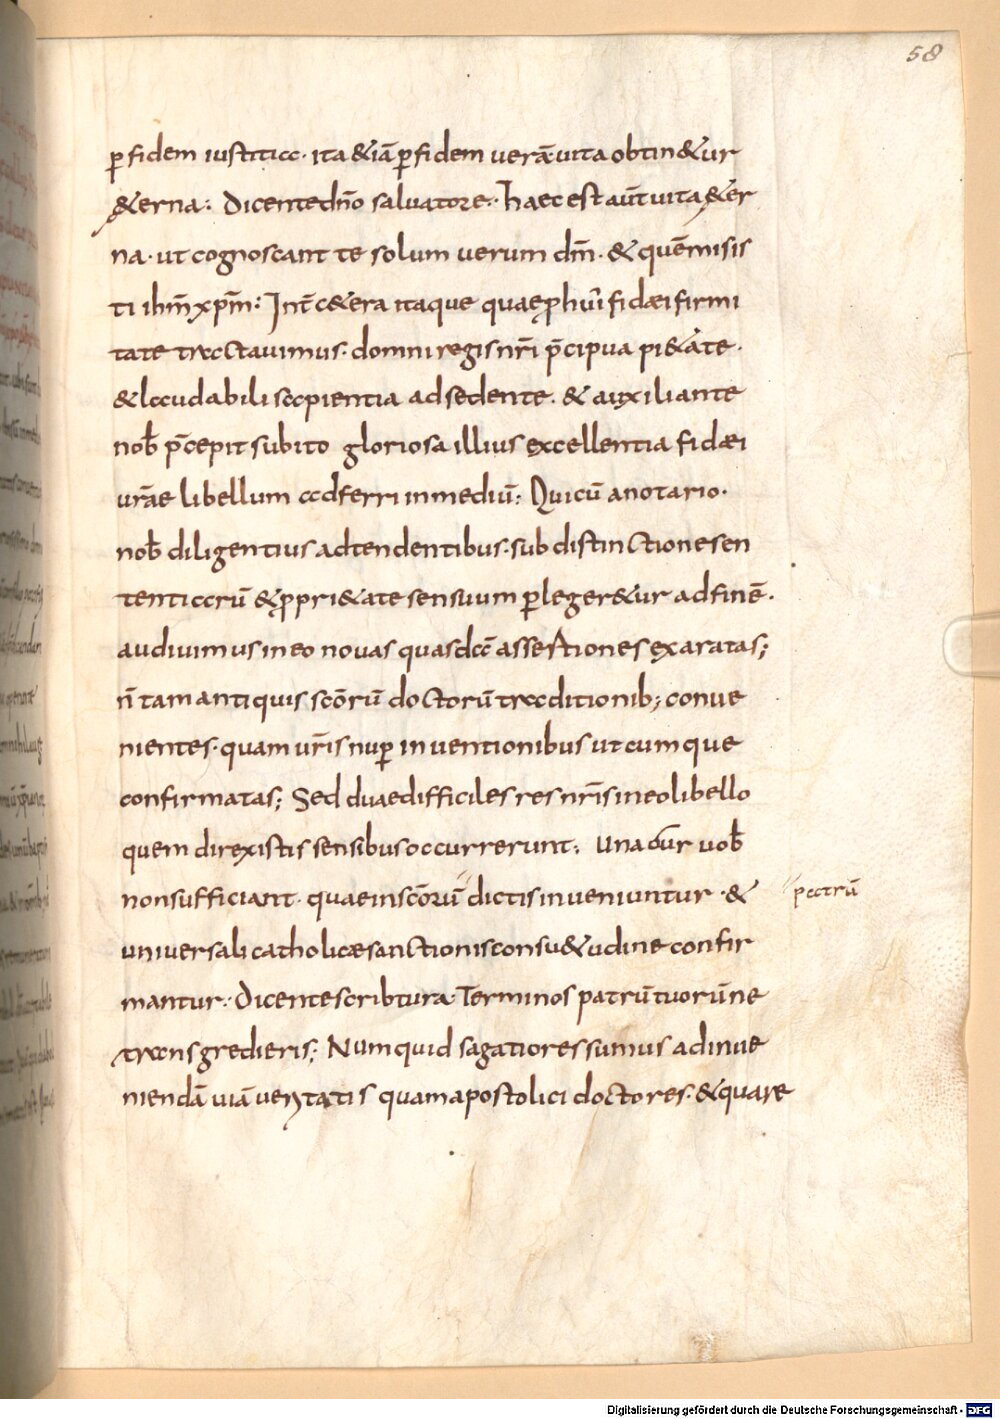 58
ꝑ fidem iustitia· ita &iā ꝑ fidem verā uita obtin&ur
&erna: Dicente dn̄o saluatore:· haec est aut̄ uita &er
na· ut cognoscant te solum uerum dm̄· & quē misis
ti ihm̄ xpm̄: Int̄ c&era itaque quae ꝓ huī fidæi firmi
tate tractauimus· domni regis nr̄i p̄cipua pi&ate·
& laudabili sapientia adsedente· & auxiliante
nob̄ p̄cepit subito gloriosa illius excellentia fidæi
ur̄ae libellum adferri in mediū: Qui cū a notario·
nob̄ diligentius adtendentibus· sub distinctione sen
tentiarū & ꝓpri&ate sensuum ꝑleger&ur ad finē·
audiuimus in eo nouas quasdā assertiones exaratas;
n̄ tam antiquis scōrū doctorū traditionib; conue
nientes· quam ur̄is nuꝑ inuentionibus utcumque
confirmatas; Sed duae difficiles res nr̄is in eo libello
quem direxistis sensibus occurrerunt: Una cur uob̄
non sufficiant· quae in scōrū dictis inueniuntur· &
patrū
uniuersali catholicæ sanctionis consu&udine confir
mantur: Dicente scribtura· Terminos patrū tuorū ne
transgredieris; Numquid sagatiores sumus ad inue
niendā uiā ueritatis quam apostolici doctores· & quare
Digitalisierung gefördert durch die Deutsche Forschungsgemeinschaft - DFG